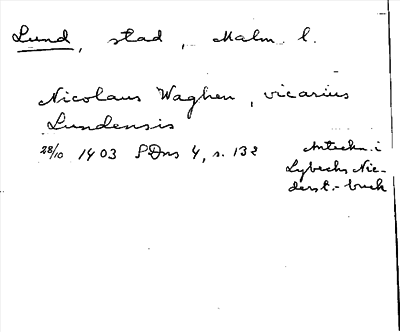 Lund, stad, Malm. l.
Nicolaus Waghen, vicarius
Lundensis
28/10 1403 SDns 4, s. 132
Anteckn. i
Lybecks Nie-
derst.-buch